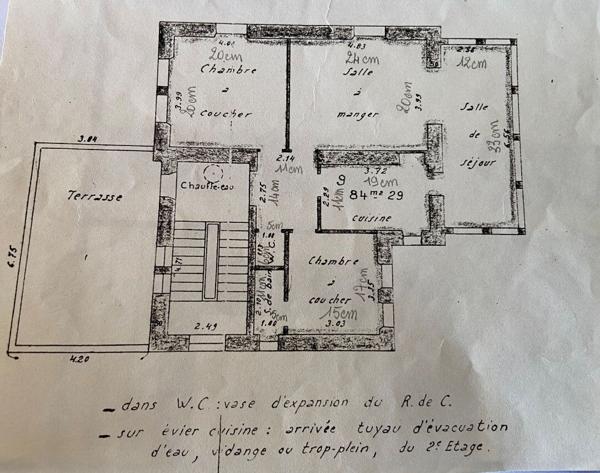 4.00
20cm
Chambre
à
coucher
3.99
20cm
4.83
24cm
Salle
à
manger
20cm
3.95
2.36
12cm
Salle
de
séjour
33cm
6.56
3.04
Terrasse
6.75
4.20
Chauffe-eau
4.71
2.49
2.14
11cm
2.75
14cm
3.72
19cm
84 m2 29
2.29
11cm
cuisine
5cm
1.00
W.C.
S. de bain
2.10
11cm
5cm
1.00
Chambre
à
coucher
17cm
3.35
15cm
3.03
— dans W.C : vase d'expansion du R. de C.
— sur évier cuisine : arrivée tuyau d'évacuation
d'eau, vidange ou trop-plein, du 2e Etage.